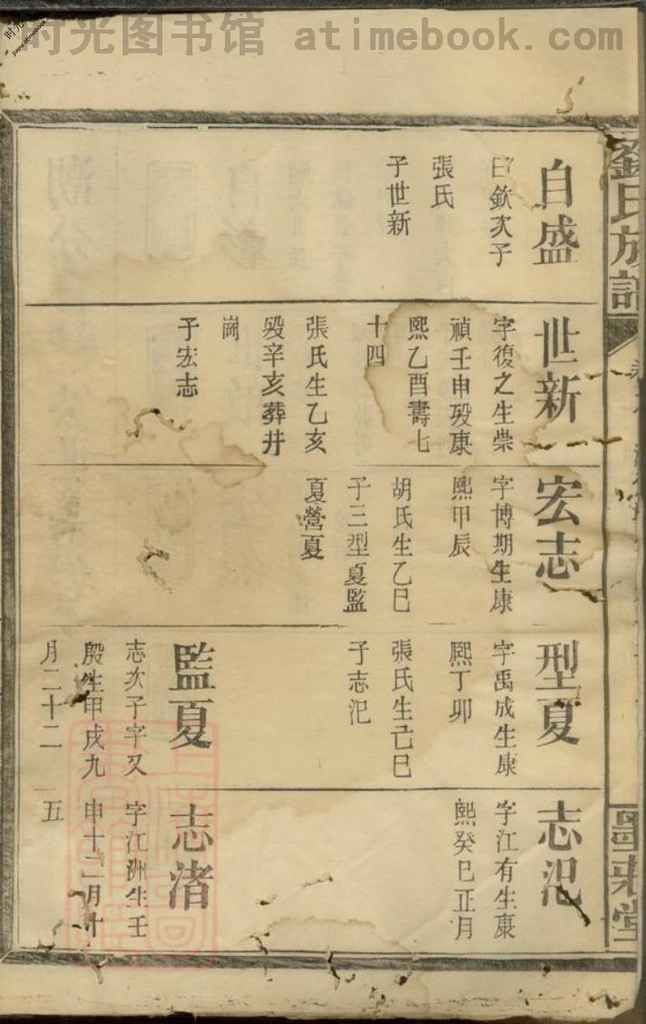 时光图书馆 atimebook.com
劉氏族譜
墨莊堂
自盛
曰欽次子
張氏
子世新
世新
字復之生崇
禎壬申歿康
熙乙酉壽七
十四
張氏生乙亥
歿辛亥葬井
崗
子宏志
宏志
字博期生康
熙甲辰
胡氏生乙巳
子三型夏監
夏營夏
型夏
字禹成生康
熙丁卯
張氏生己巳
子志汜
監夏
志次子字又
殷生甲戌九
月二十二
志汜
字江有生康
熙癸巳正月
志渚
字江洲生壬
申十二月十
五